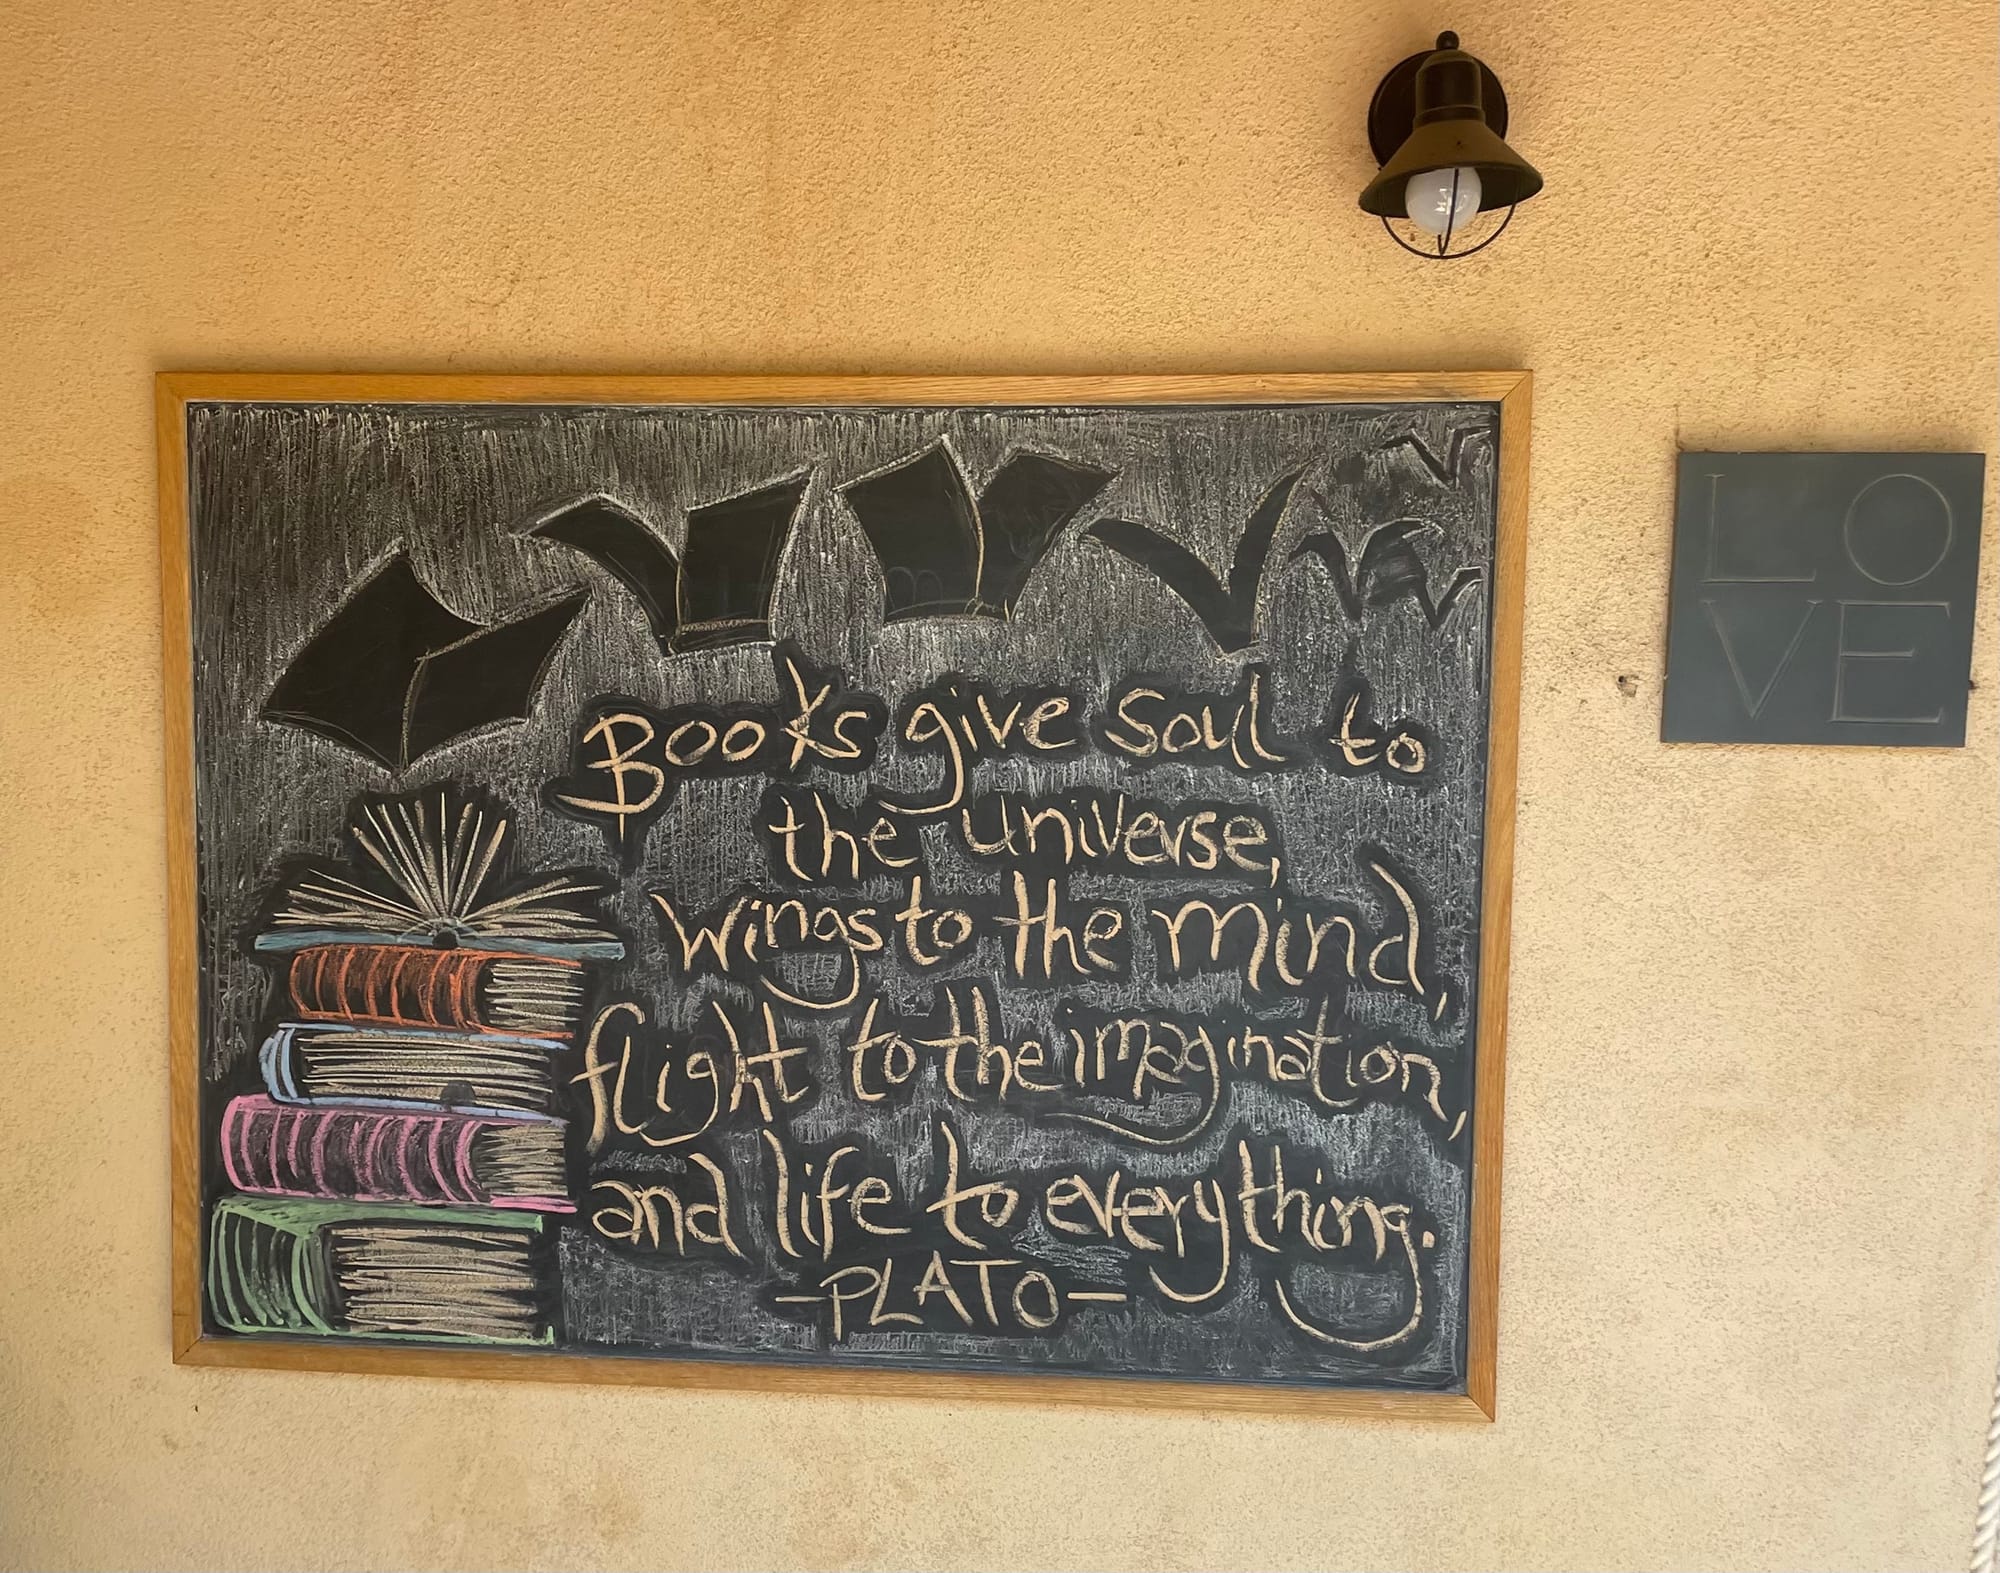 Books give soul to
the universe,
wings to the mind,
flight to the imagination,
and life to everything.
-PLATO-
LO
VE